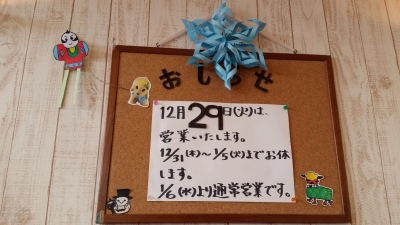 おしらせ
12月29日(火)は、
営業いたします。
12/31(木)〜1/5(火)までお休
します。
1/6(水)より通常営業です。